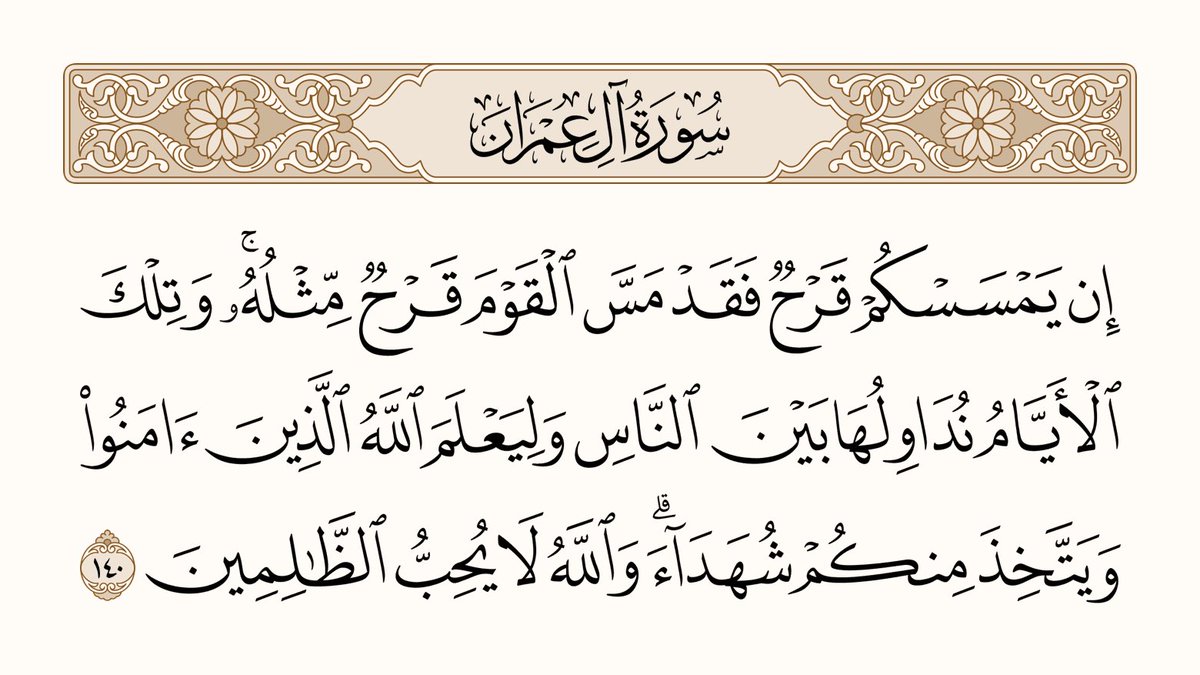 سُورَةُ آلِ عِمْرَانَ
إِن يَمْسَسْكُمْ قَرْحٌ فَقَدْ مَسَّ ٱلْقَوْمَ قَرْحٌ مِّثْلُهُۥۚ وَتِلْكَ
ٱلْأَيَّامُ نُدَاوِلُهَا بَيْنَ ٱلنَّاسِ وَلِيَعْلَمَ ٱللَّهُ ٱلَّذِينَ ءَامَنُوا۟
وَيَتَّخِذَ مِنكُمْ شُهَدَآءَۗ وَٱللَّهُ لَا يُحِبُّ ٱلظَّٰلِمِينَ ١٤٠